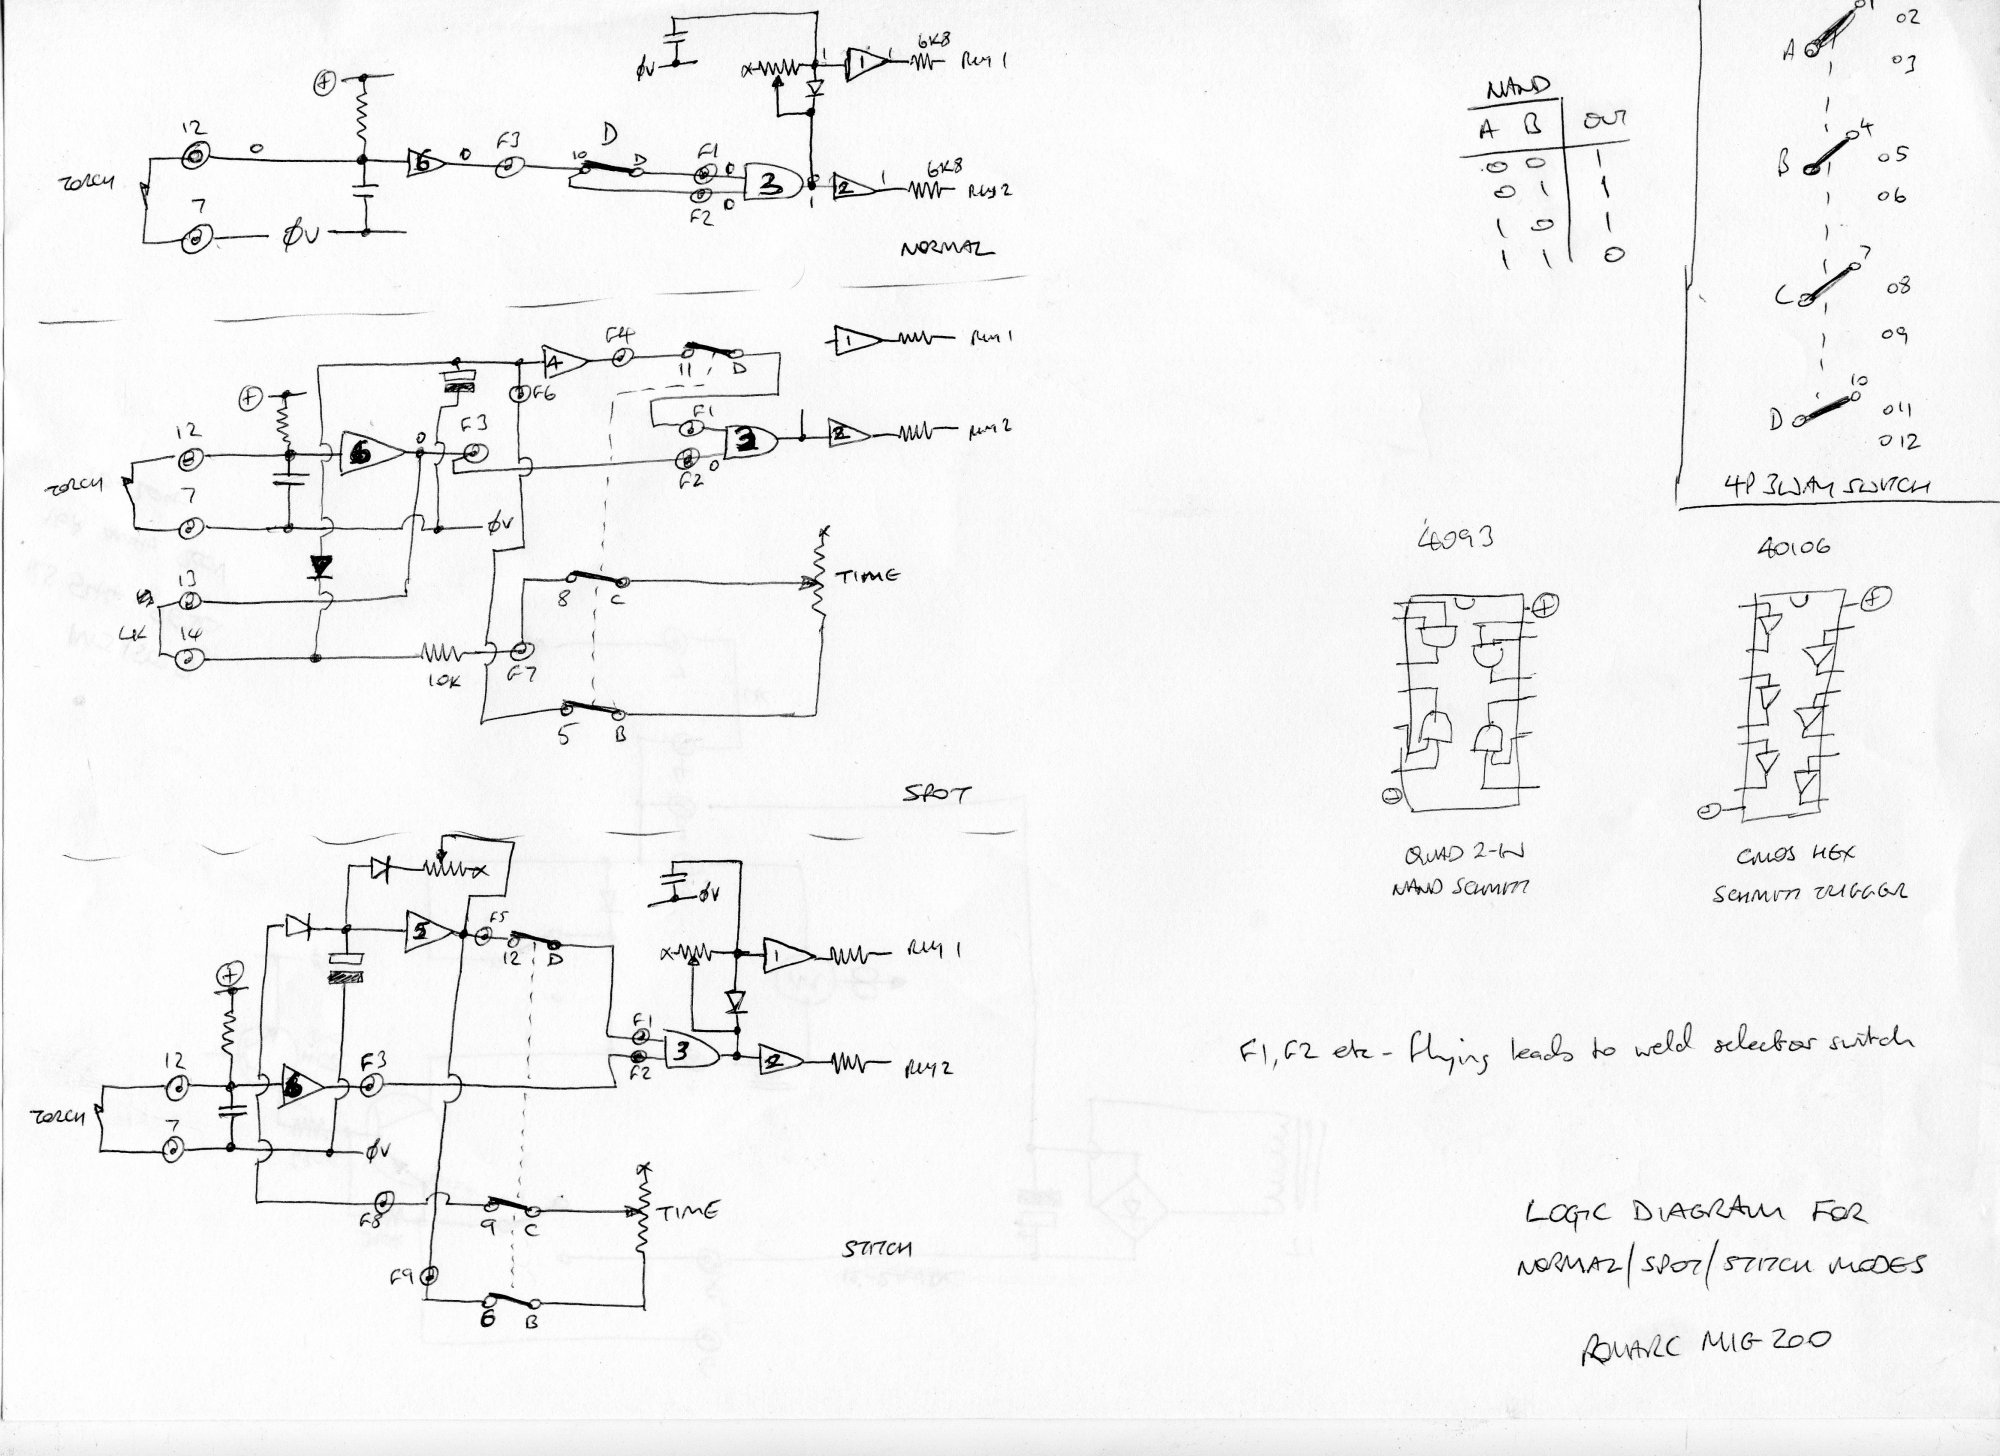 ØV
X
1
1
1
6K8
RLY 1
+
12
0
6
0
F3
10
D
D
F1
0
F2
0
3
1
2
1
6K8
RLY 2
TORCH
7
ØV
NORMAL
NAND
A B OUT
0 0 1
0 1 1
1 0 1
1 1 0
A
01
02
03
B
4
05
06
C
7
08
09
D
10
011
012
4P 3WAY SWITCH
4
F4
11
D
1
RLY 1
+
F6
12
6
0
F3
F1
F2
0
3
2
RLY 2
TORCH
7
ØV
13
4K
14
10K
F7
8
C
X
TIME
5
B
SPOT
4093
40106
+
+
QUAD 2-IN
NAND SCHMITT
CMOS HEX
SCHMITT TRIGGER
X
5
F5
12
D
ØV
X
1
RLY 1
+
12
6
F3
F1
F2
3
2
RLY 2
TORCH
7
ØV
F8
9
C
X
TIME
F9
6
B
STITCH
F1, F2 etc - flying leads to weld selector switch
LOGIC DIAGRAM FOR
NORMAL/SPOT/STITCH MODES
MIG 200